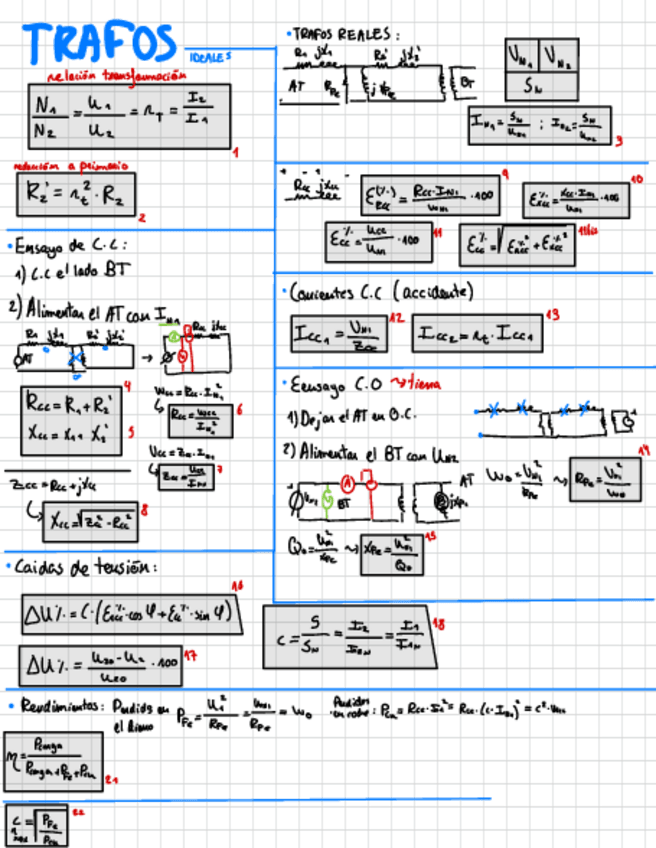 TRAFOS IDEALES
relación transformación
N1/N2 = U1/U2 = rT = I2/I1
1
reducción a primario
R2' = rt² · R2
2
• Ensayo de C.C:
1) C.C el lado BT
2) Alimentar el AT con IN1
R1 jX1 R2' jX2' Rcc jXcc
AT
4
Rcc = R1 + R2'
Xcc = X1 + X2'
5
Wcc = Rcc · IN1²
Rcc = Wcc/IN1²
6
Ucc = Zcc · IN1
Zcc = Ucc/IN1
7
Zcc = Rcc + jXcc
Xcc = √Zcc² - Rcc²
8
• Caidas de tensión:
ΔU% = C · (εRcc% · cos φ + εXcc% · sin φ)
16
ΔU% = (U20 - U2)/U20 · 100
17
• TRAFOS REALES:
R1 jX1 R2' jX2'
AT RFe jXFe BT
UN1 UN2
SN
IN1 = SN/UN1 ; IN2 = SN/UN2
3
Rcc jXcc
εRcc(%) = Rcc · IN1/UN1 · 100
9
εXcc% = Xcc · IN1/UN1 · 100
10
εcc% = Ucc/UN1 · 100
11
εcc% = √εRcc%² + εXcc%²
11bis
• Corrientes C.C (accidente)
Icc1 = UN1/Zcc
12
Icc2 = rt · Icc1
13
• Eensayo C.O ~> tierra
1) Dejar el AT en O.C.
2) Alimentar el BT con UN2
A BT AT
W0 = UN1²/RFe ~> RFe = UN1²/W0
14
Q0 = UN1²/XFe ~> XFe = UN1²/Q0
15
C = S/SN = I2/I2N = I1/I1N
18
• Rendimientos: Perdidas en el hierro PFe = U1²/RFe = UN1²/RFe = W0
Perdidas en cobre: PCu = Rcc · I1² = Rcc · (C · IN1)² = C² · Wcc
η = Pcarga/(Pcarga + PFe + PCu)
21
Cηmax = √PFe/PCu
22